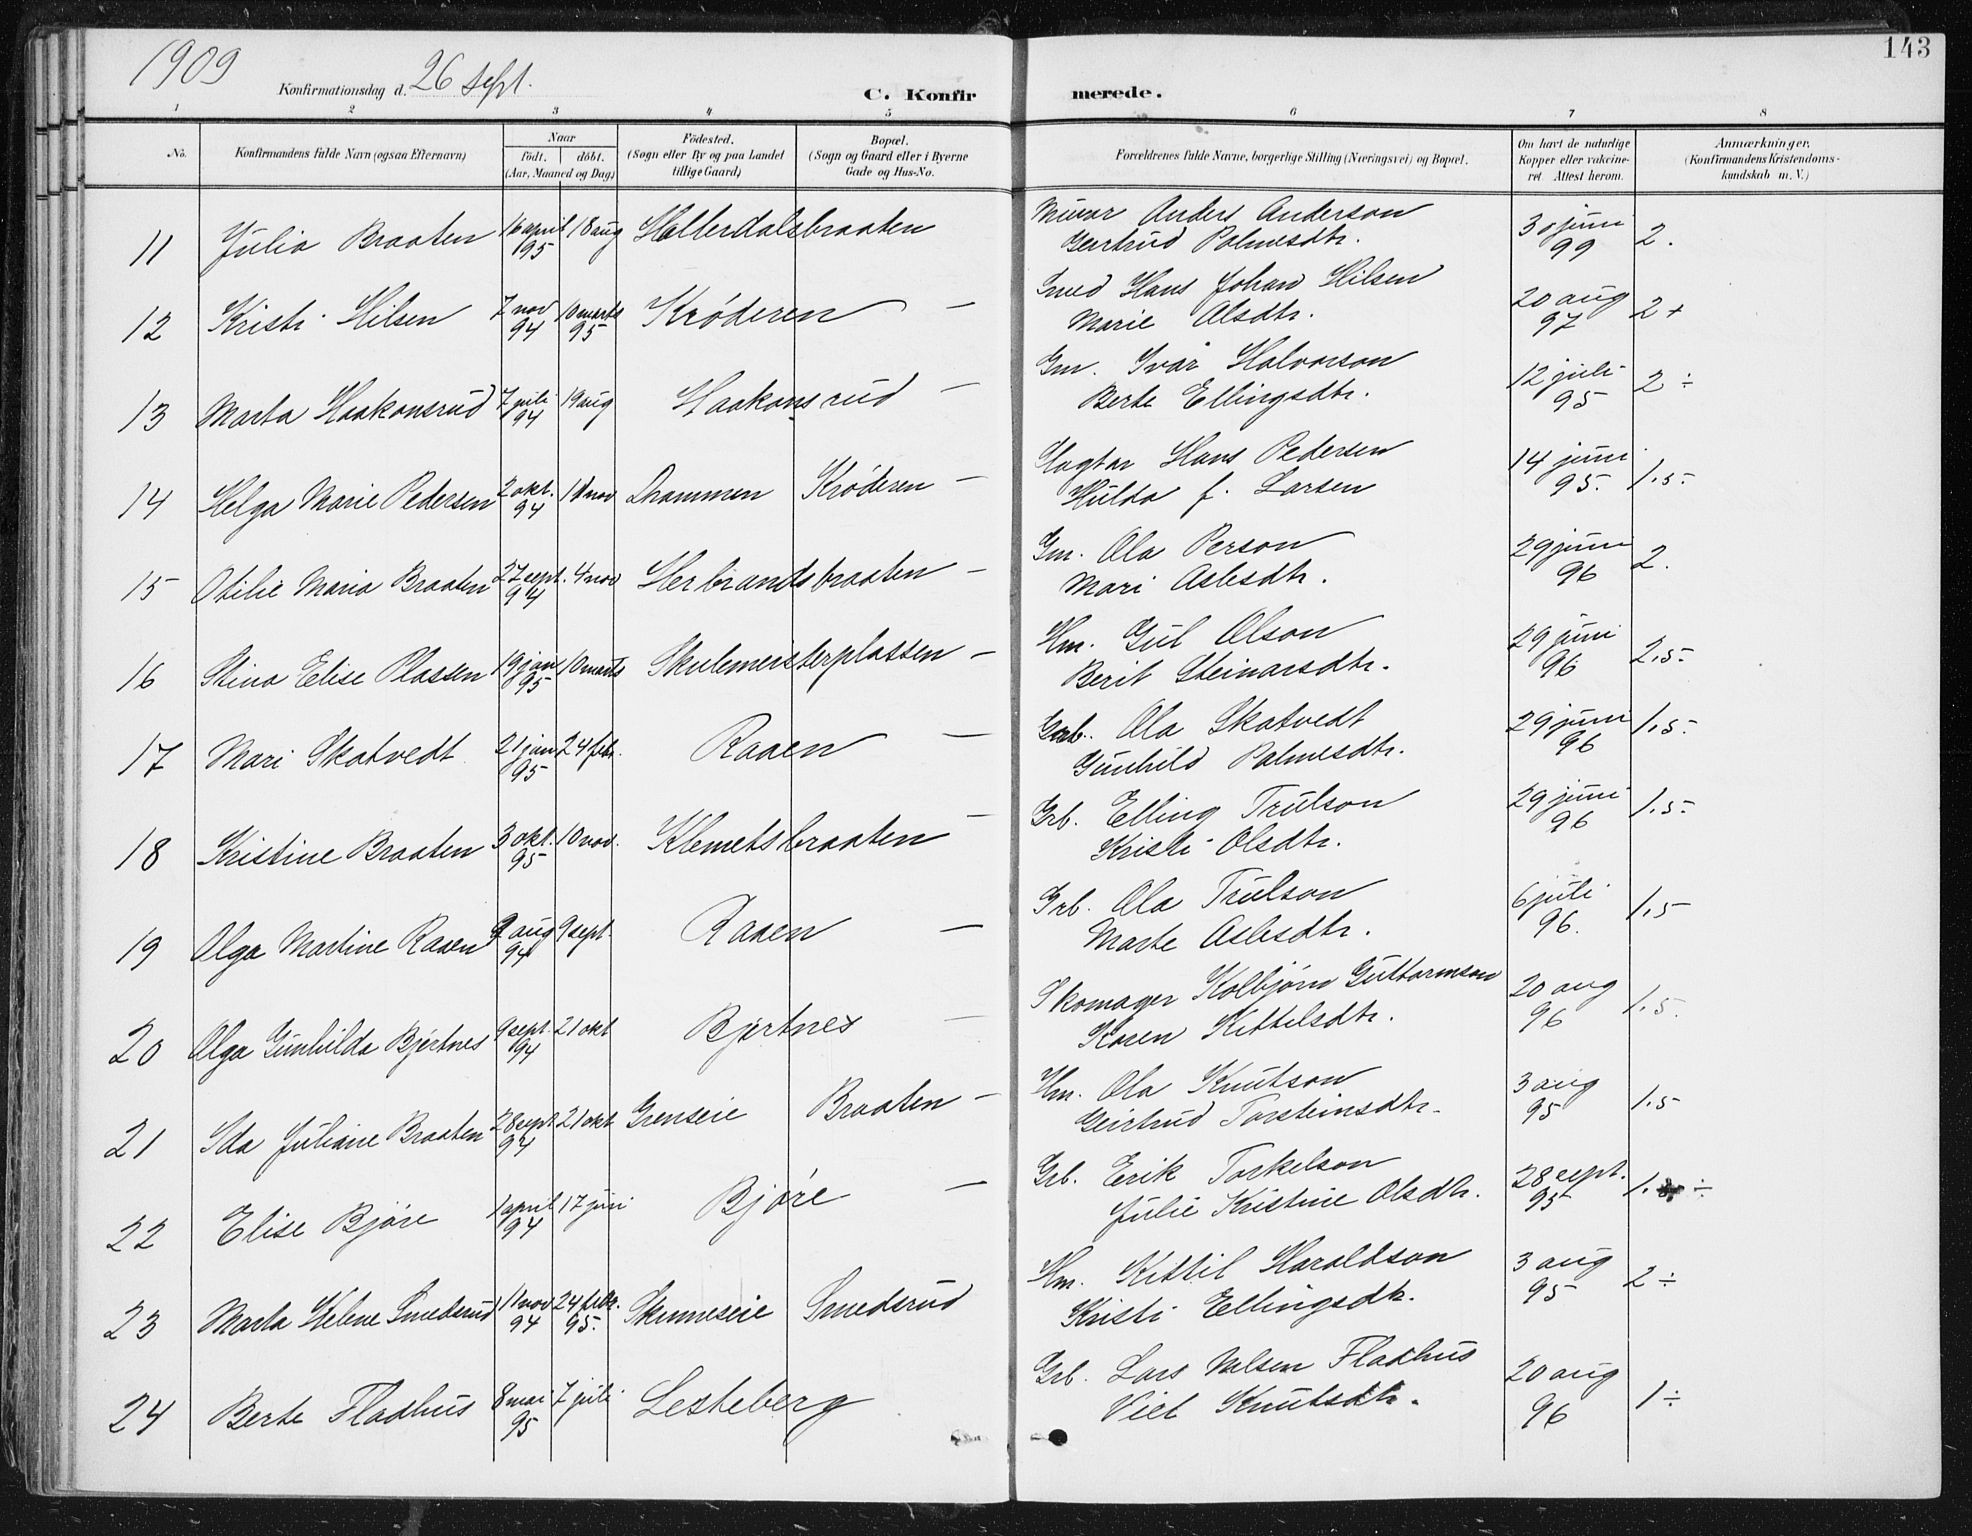 1909
143
Konfirmationsdag d. 26 sept.
C. Konfirmerede.
1 2 3 4 5 6 7 8
No.
Konfirmandens fulde Navn (ogsaa Efternavn)
Naar
födt. döbt.
(Aar, Maaned og Dag)
Födested.
(Sogn eller By og paa Landet
tillige Gaard)
Bopæl.
(Sogn og Gaard eller i Byerne
Gade og Hus-No.
Forældrenes fulde Navne, borgerlige Stilling (Næringsvei) og Bopæl.
Om havt de naturlige
Kopper eller vakcine-
ret Attest herom.
Anmærkninger.
(Konfirmandens Kristendoms-
kundskab m. V.)
11 Julia Braaten 16 april 95 18 aug Hollerdalsbraaten Murar Anders Anderson 30 juni 99 2.
Geirtrud Palmesdtr.
12 Kristi Hilsen 7 nov 94 10 marts 95 Krøderen — Smed Hans Johan Hilsen 20 aug 97 2 +
Marie Olsdtr.
13 Marta Haakonsrud 7 juli 94 19 aug Haakonsrud — Gm. Ivar Halvorson 12 juli 95 2 ÷
Berte Ellingsdtr.
14 Helga Marie Pedersen 2 okt. 94 11 nov Drammen Krøderen — Hans Pedersen 14 juni 95. 1.5.
Hulda f. Larsen
15 Otilie Maria Braaten 27 sept. 94 4 nov Herbrandsbraaten — Gm. Ola Person 29 juni 96 2.
Mari Aslesdtr.
16 Stina Elise Plassen 19 jan 95 10 marts Skulemeisterplassen — Hm. Gul Olson 29 juni 96 2.5.
Berit Steinarsdtr.
17 Mari Skatvedt 21 jan 95 24 febr. Raaen — Grb. Ola Skatvedt 29 juni 96 1.5.
Gunhild Palmesdtr.
18 Kristine Braaten 3 okt. 95 10 nov. Klemetsbraaten — Grb. Elling Trulson 29 juni 96 1.5.
Kristi Olsdtr.
19 Olga Martine Raaen 9 aug 94 9 sept. Raaen — Grb. Ola Trulson 6 juli 96. 1.5
Marte Aslesdtr.
20 Olga Gunhilda Bjertnes 9 sept. 94 21 okt Bjertnes — Skomager Kolbjørn Guttormson 20 aug 96 1.5.
Karen Kittelsdtr.
21 Ida Juliane Braaten 28 sept 94 21 okt Grenseie Braaten — Hm. Ola Knutson 3 aug 95 1.5
Geirtrud Torsteinsdtr.
22 Elise Bjøre 1 april 94 17 juni Bjøre — Grb. Erik Torkelson 28 sept. 95 1. ÷
Julie Kristine Olsdtr.
23 Marta Helene Smedsrud 11 nov 94 24 febr. 95. Skinneseie Smedsrud Hm. Kittil Haraldson 3 aug 95 2 ÷
Kristi Ellingsdtr.
24 Berte Fladhus 8 mai 95 7 juli Lesteberg Grb. Lars Nilsen Fladhus 20 aug 96 1 ÷
Viel Knutsdtr.